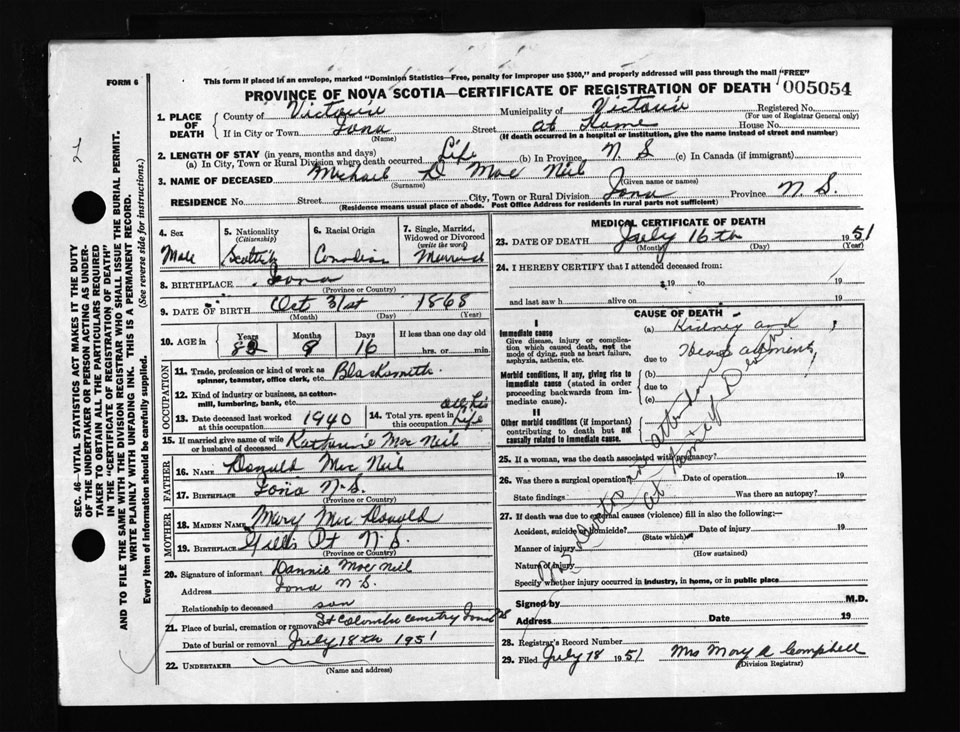 This form if placed in an envelope, marked "Dominion Statistics—Free, penalty for improper use $300," and properly addressed will pass through the mail "FREE"
FORM 6
PROVINCE OF NOVA SCOTIA—CERTIFICATE OF REGISTRATION OF DEATH 005054
SEC. 46—VITAL STATISTICS ACT MAKES IT THE DUTY
OF THE UNDERTAKER OR PERSON ACTING AS UNDER-
TAKER TO OBTAIN ALL THE PARTICULARS REQUIRED
IN THE "CERTIFICATE OF REGISTRATION OF DEATH"
AND TO FILE THE SAME WITH THE DIVISION REGISTRAR WHO SHALL ISSUE THE BURIAL PERMIT.
WRITE PLAINLY WITH UNFADING INK. THIS IS A PERMANENT RECORD.
Every item of information should be carefully supplied. (See reverse side for instructions.)
1. PLACE OF DEATH
County of Victoria Municipality of Victoria Registered No.
(For use of Registrar General only)
If in City or Town Iona Street at Home House No.
(Name) (If death occurred in a hospital or institution, give the name instead of street and number)
2. LENGTH OF STAY (in years, months and days)
(a) In City, Town or Rural Division where death occurred Life (b) In Province N. S (c) In Canada (if immigrant)
3. NAME OF DECEASED Michael D Mac Neil
(Surname) (Given name or names)
RESIDENCE No. Street City, Town or Rural Division Iona Province N. S.
(Residence means usual place of abode. Post Office Address for residents in rural parts not sufficient)
4. Sex Male
5. Nationality (Citizenship) Scottish
6. Racial Origin Canadian
7. Single, Married, Widowed or Divorced (write the word) Married
8. BIRTHPLACE Iona
(Province or Country)
9. DATE OF BIRTH Oct 31st 1868
(Month) (Day) (Year)
10. AGE in Years 82 Months 8 Days 16 If less than one day old hrs. or min.
OCCUPATION
11. Trade, profession or kind of work as spinner, teamster, office clerk, etc. Blacksmith
12. Kind of industry or business, as cotton-mill, lumbering, bank, etc.
13. Date deceased last worked at this occupation 1940
14. Total yrs. spent in this occupation all his Life
15. If married give name of wife or husband of deceased Katherine Mac Neil
FATHER
16. NAME Donald Mac Neil
17. BIRTHPLACE Iona N.S.
(Province or Country)
MOTHER
18. MAIDEN NAME Mary Mac Donald
19. BIRTHPLACE Gillis Pt N. S.
(Province or Country)
20. Signature of informant Dannie Mac Neil
Address Iona N S.
Relationship to deceased son
21. Place of burial, cremation or removal St Columba Cemetry Iona NS
Date of burial or removal July 18th 1951
22. UNDERTAKER
(Name and address)
MEDICAL CERTIFICATE OF DEATH
23. DATE OF DEATH July 16th 1951
(Month) (Day) (Year)
24. I HEREBY CERTIFY that I attended deceased from:
19 to 19
and last saw h alive on 19
CAUSE OF DEATH
I
Immediate cause
Give disease, injury or complication which caused death, not the mode of dying, such as heart failure, asphyxia, asthenia, etc.
(a) Kidney and
due to Heart ailment
Morbid conditions, if any, giving rise to immediate cause (stated in order proceeding backwards from immediate cause).
(b)
due to
(c)
II
Other morbid conditions (if important) contributing to death but not causally related to immediate cause.
No Doctor in attendance at time of Death
25. If a woman, was the death associated with pregnancy?
26. Was there a surgical operation? Date of operation 19
State findings Was there an autopsy?
27. If death was due to external causes (violence) fill in also the following:—
Accident, suicide or homicide? Date of injury 19
(State which)
Manner of injury
(How sustained)
Nature of injury
Specify whether injury occurred in industry, in home, or in public place
Signed by M.D.
Address Date 19
28. Registrar's Record Number
29. Filed July 18 1951 Mrs Mary A Campbell
(Division Registrar)